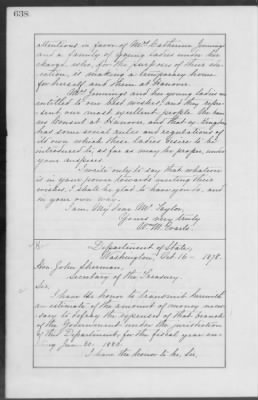 638.
attentions in favor of Mrs. Catherine Jennings
and a family of young ladies under her
charge, who, for the purposes of their edu-
cation, is making a temporary home
for herself and them at Hanover.
Mrs. Jennings and her young ladies are
entitled to our best wishes, and they repre-
sent our most excellent people. We have
no Consul at Hanover, and that
has some social rules and regulations of
its own which these ladies desire to be
introduced to, as far as may be proper, under
your auspices.
I write only to say that whatever
is in your power towards meeting their
wishes, I shall be glad to have you do, and
in your own way.
I am, My dear Mr. Taylor,
Yours very truly
Wm. M. Evarts.
Department of State,
Washington, Oct. 16 - 1878.
Hon. John Sherman,
Secretary of the Treasury.
Sir,
I have the honor to transmit herewith
an estimate of the amount of money neces-
sary to defray the expenses of that branch
of the Government under the jurisdiction
of this Department, for the fiscal year end-
ing June 30, 1880.
I have the honor to be, Sir,